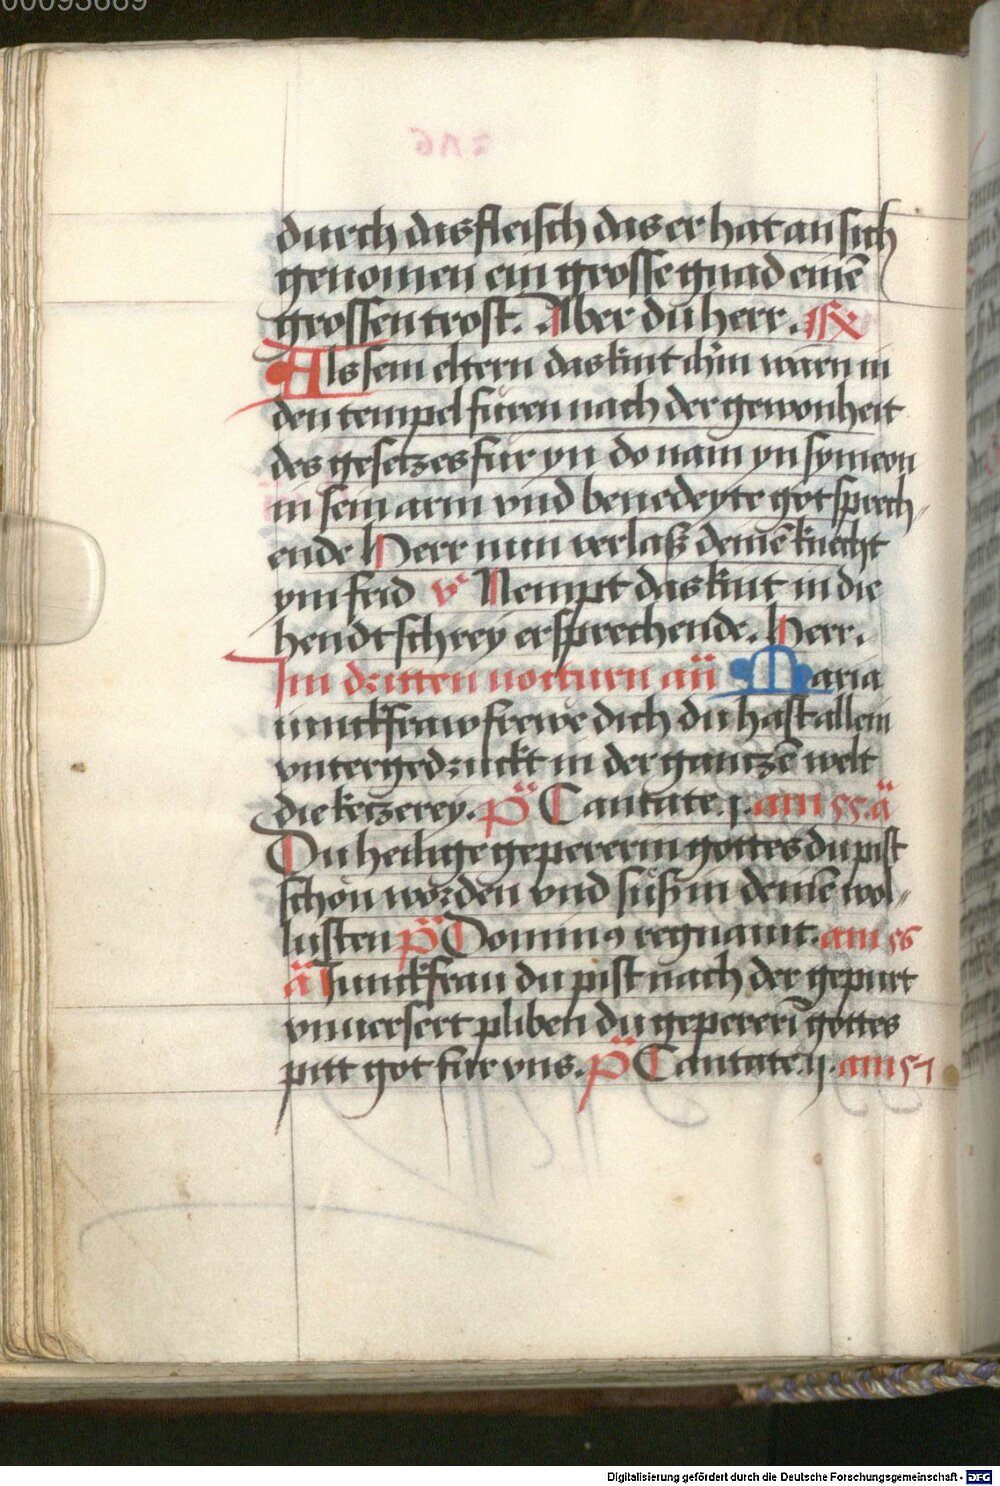 00093669
durch das fleisch das er hat an sich
genomen ein grosse gnad einē
grossen trost. Aber du herr. ℟
Als sein eltern das kint ihm warn in
den tempel füren nach der gewonheit
des gesetzes für yn do nam yn symeon
in sein arm vnd benedeyte got sprech
ende Herr nun verlaß deinē knecht
ym frid v Nempt das kint in die
hendt schrey er sprechende. Herr.
Im dritten nocturn añ Maria
iunckfraw frewe dich du hast allein
vntergedruckt in der gantzē welt
die ketzerey. p̄s Cantate .j. am 55. ä
Du heilige gepererin gottes du pist
schön worden vnd süß in deinē wol
lusten p̄s Dominꝰ regnauit. am 56
ä Junckfrau du pist nach der gepurt
vnuersert pliben du gepererī gottes
pitt got für vns. p̄s Cantate .ij. am 57
Digitalisierung gefördert durch die Deutsche Forschungsgemeinschaft - DFG